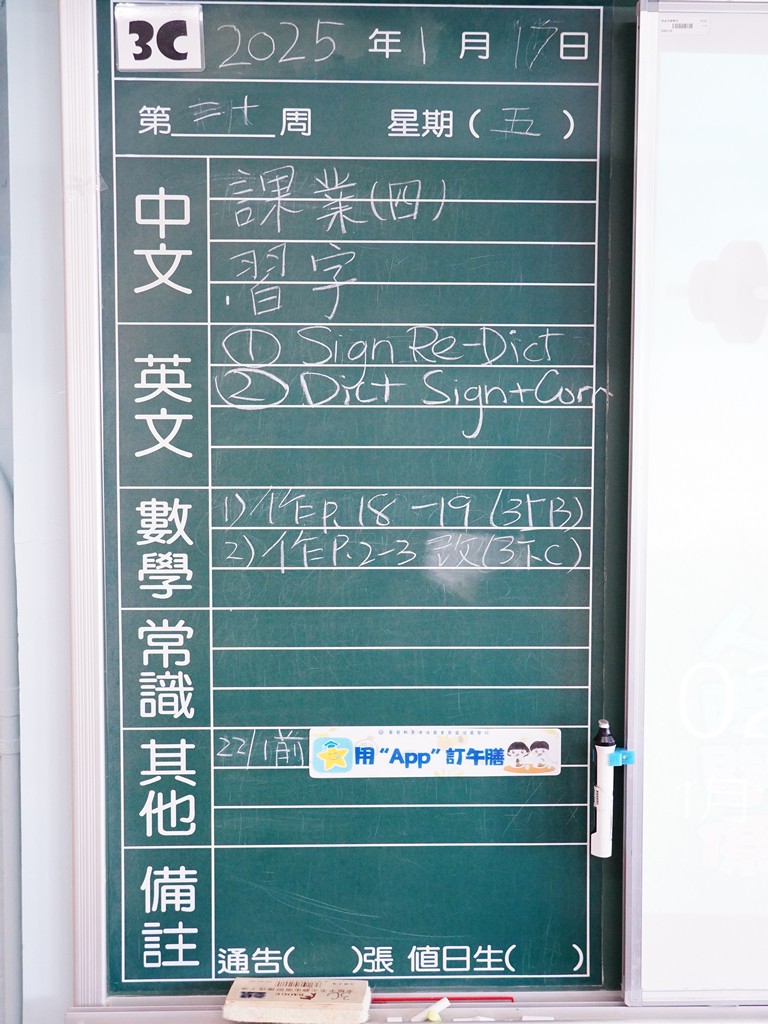 3C 2025年1月17日
第二十周 星期(五)
中文
課業(四)
習字
英文
① Sign Re-Dict
② Dict Sign+Corr
數學
1) 作P. 18-19 (3下B)
2) 作P. 2-3 改(3下C)
常識
其他
22/1前 用“App”訂午膳
備註
通告( )張 值日生( )